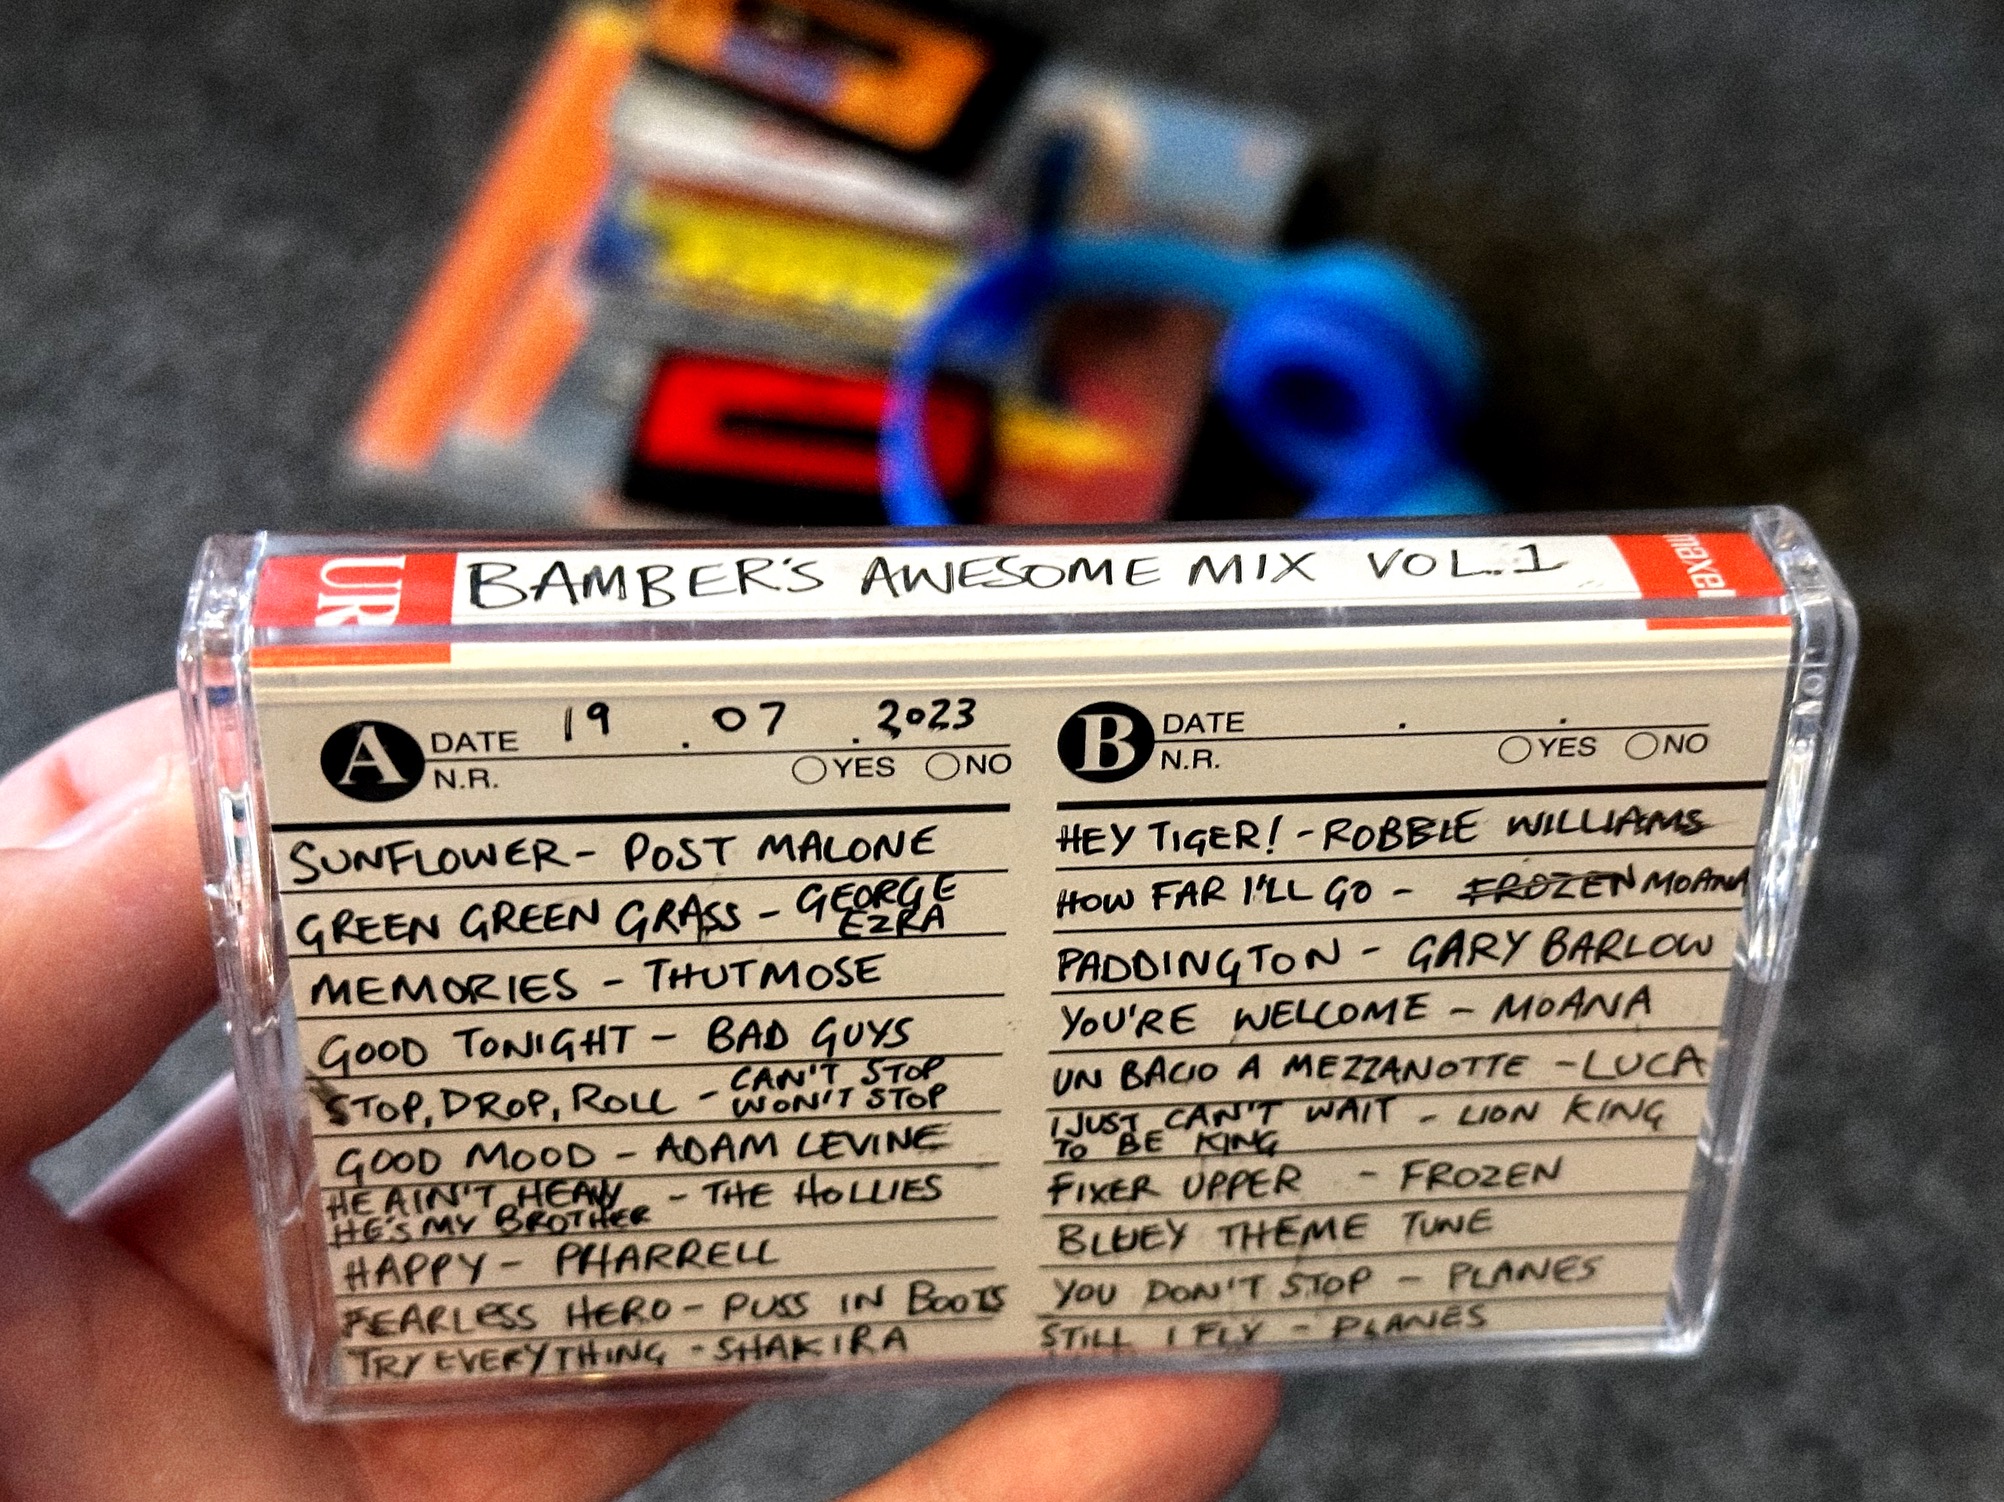 UR BAMBER'S AWESOME MIX VOL.1 maxell
A DATE 19 . 07 . 2023
N.R. YES NO
SUNFLOWER - POST MALONE
GREEN GREEN GRASS - GEORGE EZRA
MEMORIES - THUTMOSE
GOOD TONIGHT - BAD GUYS
STOP, DROP, ROLL - CAN'T STOP WON'T STOP
GOOD MOOD - ADAM LEVINE
HE AIN'T HEAVY HE'S MY BROTHER - THE HOLLIES
HAPPY - PHARRELL
FEARLESS HERO - PUSS IN BOOTS
TRY EVERYTHING - SHAKIRA
B DATE . .
N.R. YES NO
HEY TIGER! - ROBBIE WILLIAMS
HOW FAR I'LL GO - FROZEN MOANA
PADDINGTON - GARY BARLOW
YOU'RE WELCOME - MOANA
UN BACIO A MEZZANOTTE - LUCA
I JUST CAN'T WAIT TO BE KING - LION KING
FIXER UPPER - FROZEN
BLUEY THEME TUNE
YOU DON'T STOP - PLANES
STILL I FLY - PLANES